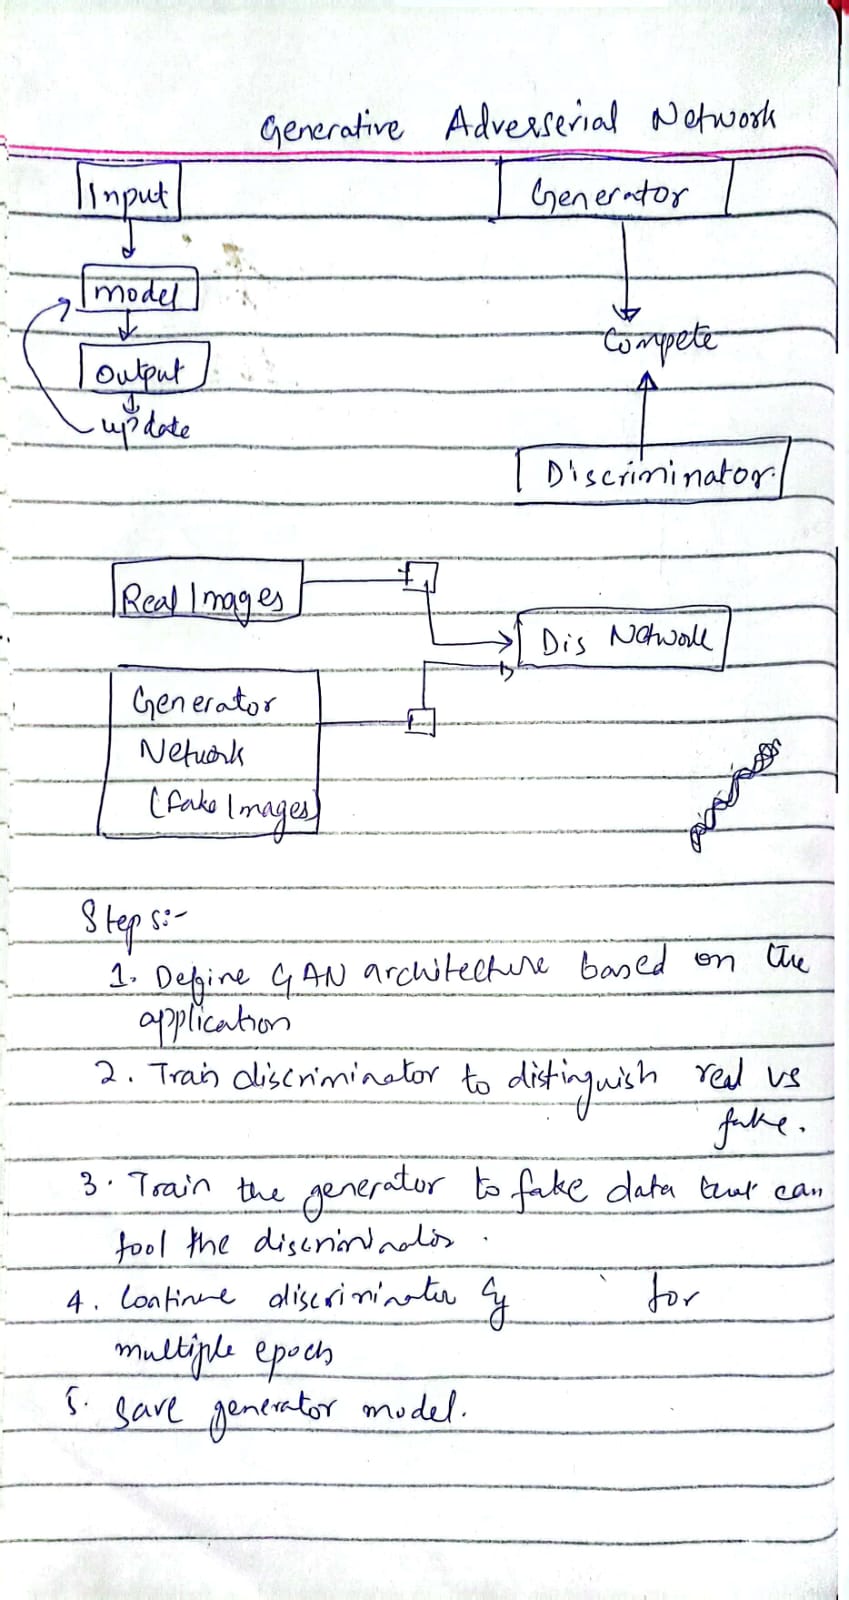 Generative Adverserial Network
Input
model
Output
update
Generator
Compete
Discriminator.
Real Images
Dis Network
Generator
Network
(Fake Images)
Steps:-
1. Define GAN architecture based on the
application
2. Train discriminator to distinguish real vs
fake.
3. Train the generator to fake data that can
fool the discriminator.
4. Continue discriminator for
multiple epoch
5. Save generator model.